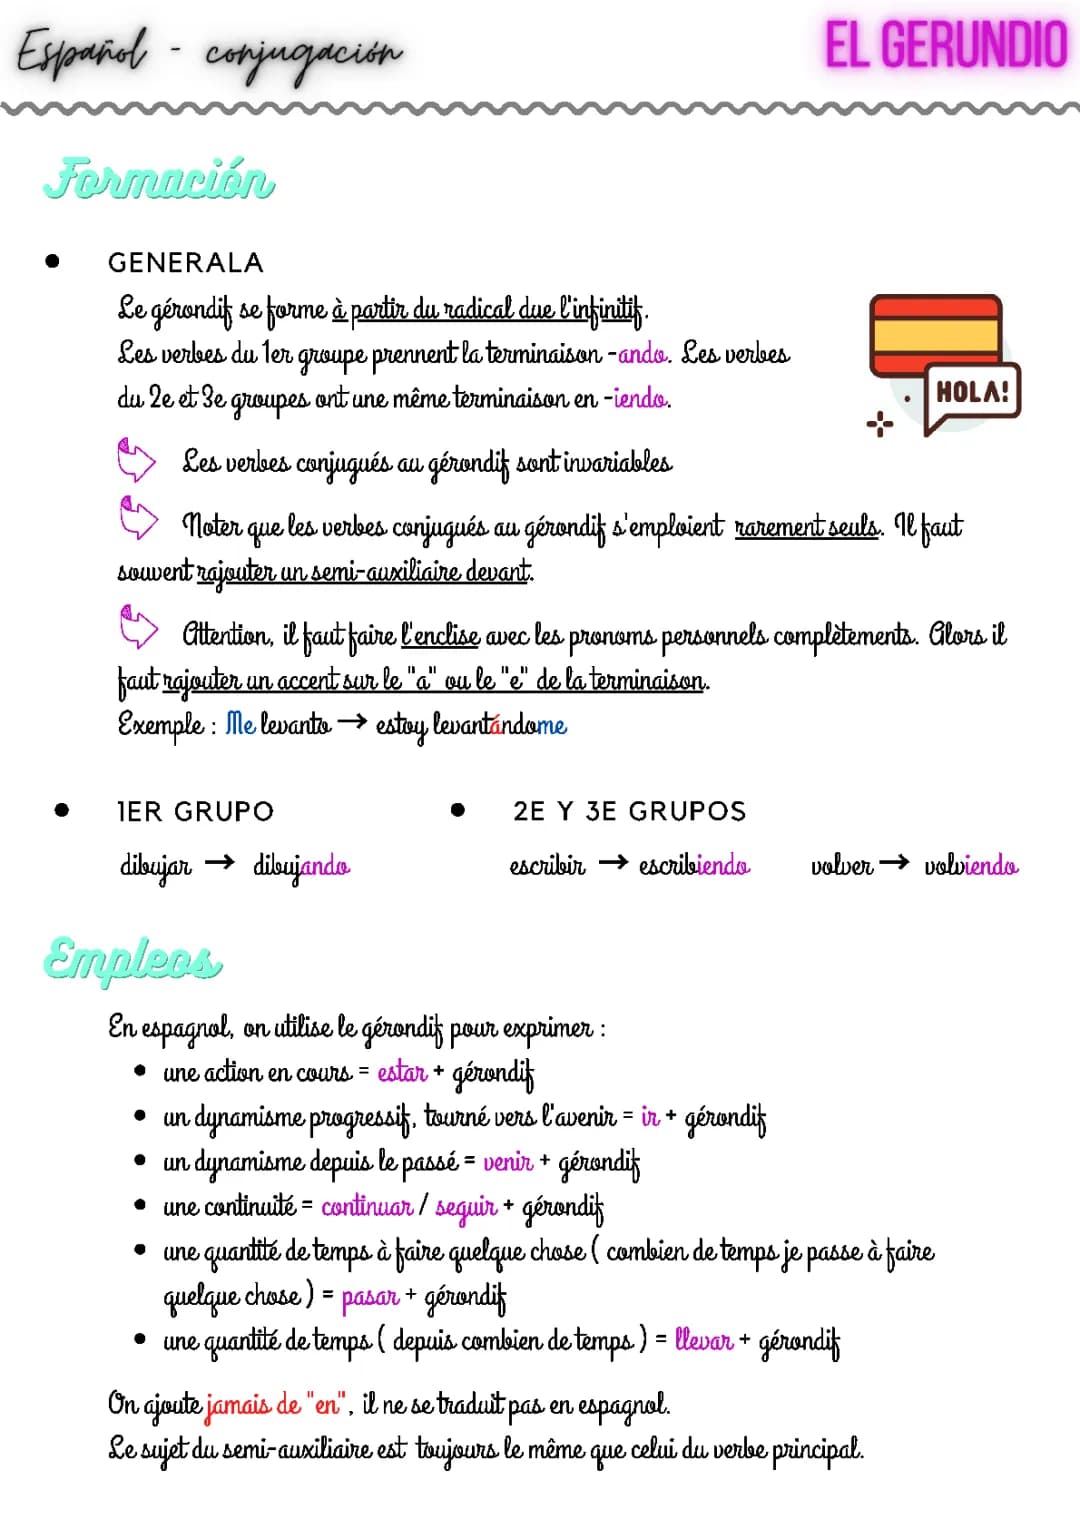 Español - conjugación
EL GERUNDIO
Formación
• GENERALA
Le gérondif se forme à partir du radical due l'infinitif.
Les verbes du 1er groupe prennent la terminaison -ando. Les verbes
du 2e et 3e groupes ont une même terminaison en -iendo.
HOLA!
Les verbes conjugués au gérondif sont invariables
Noter que les verbes conjugués au gérondif s'emploient rarement seuls. Il faut
souvent rajouter un semi-auxiliaire devant.
Attention, il faut faire l'enclise avec les pronoms personnels complètements. Alors il
faut rajouter un accent sur le "a" ou le "e" de la terminaison.
Exemple : Me levanto → estoy levantándome
• 1ER GRUPO
dibujar → dibujando
• 2E Y 3E GRUPOS
escribir → escribiendo volver → volviendo
Empleos
En espagnol, on utilise le gérondif pour exprimer :
• une action en cours = estar + gérondif
• un dynamisme progressif, tourné vers l'avenir = ir + gérondif
• un dynamisme depuis le passé = venir + gérondif
• une continuité = continuar / seguir + gérondif
• une quantité de temps à faire quelque chose ( combien de temps je passe à faire
quelque chose ) = pasar + gérondif
• une quantité de temps ( depuis combien de temps ) = llevar + gérondif
On ajoute jamais de "en", il ne se traduit pas en espagnol.
Le sujet du semi-auxiliaire est toujours le même que celui du verbe principal.